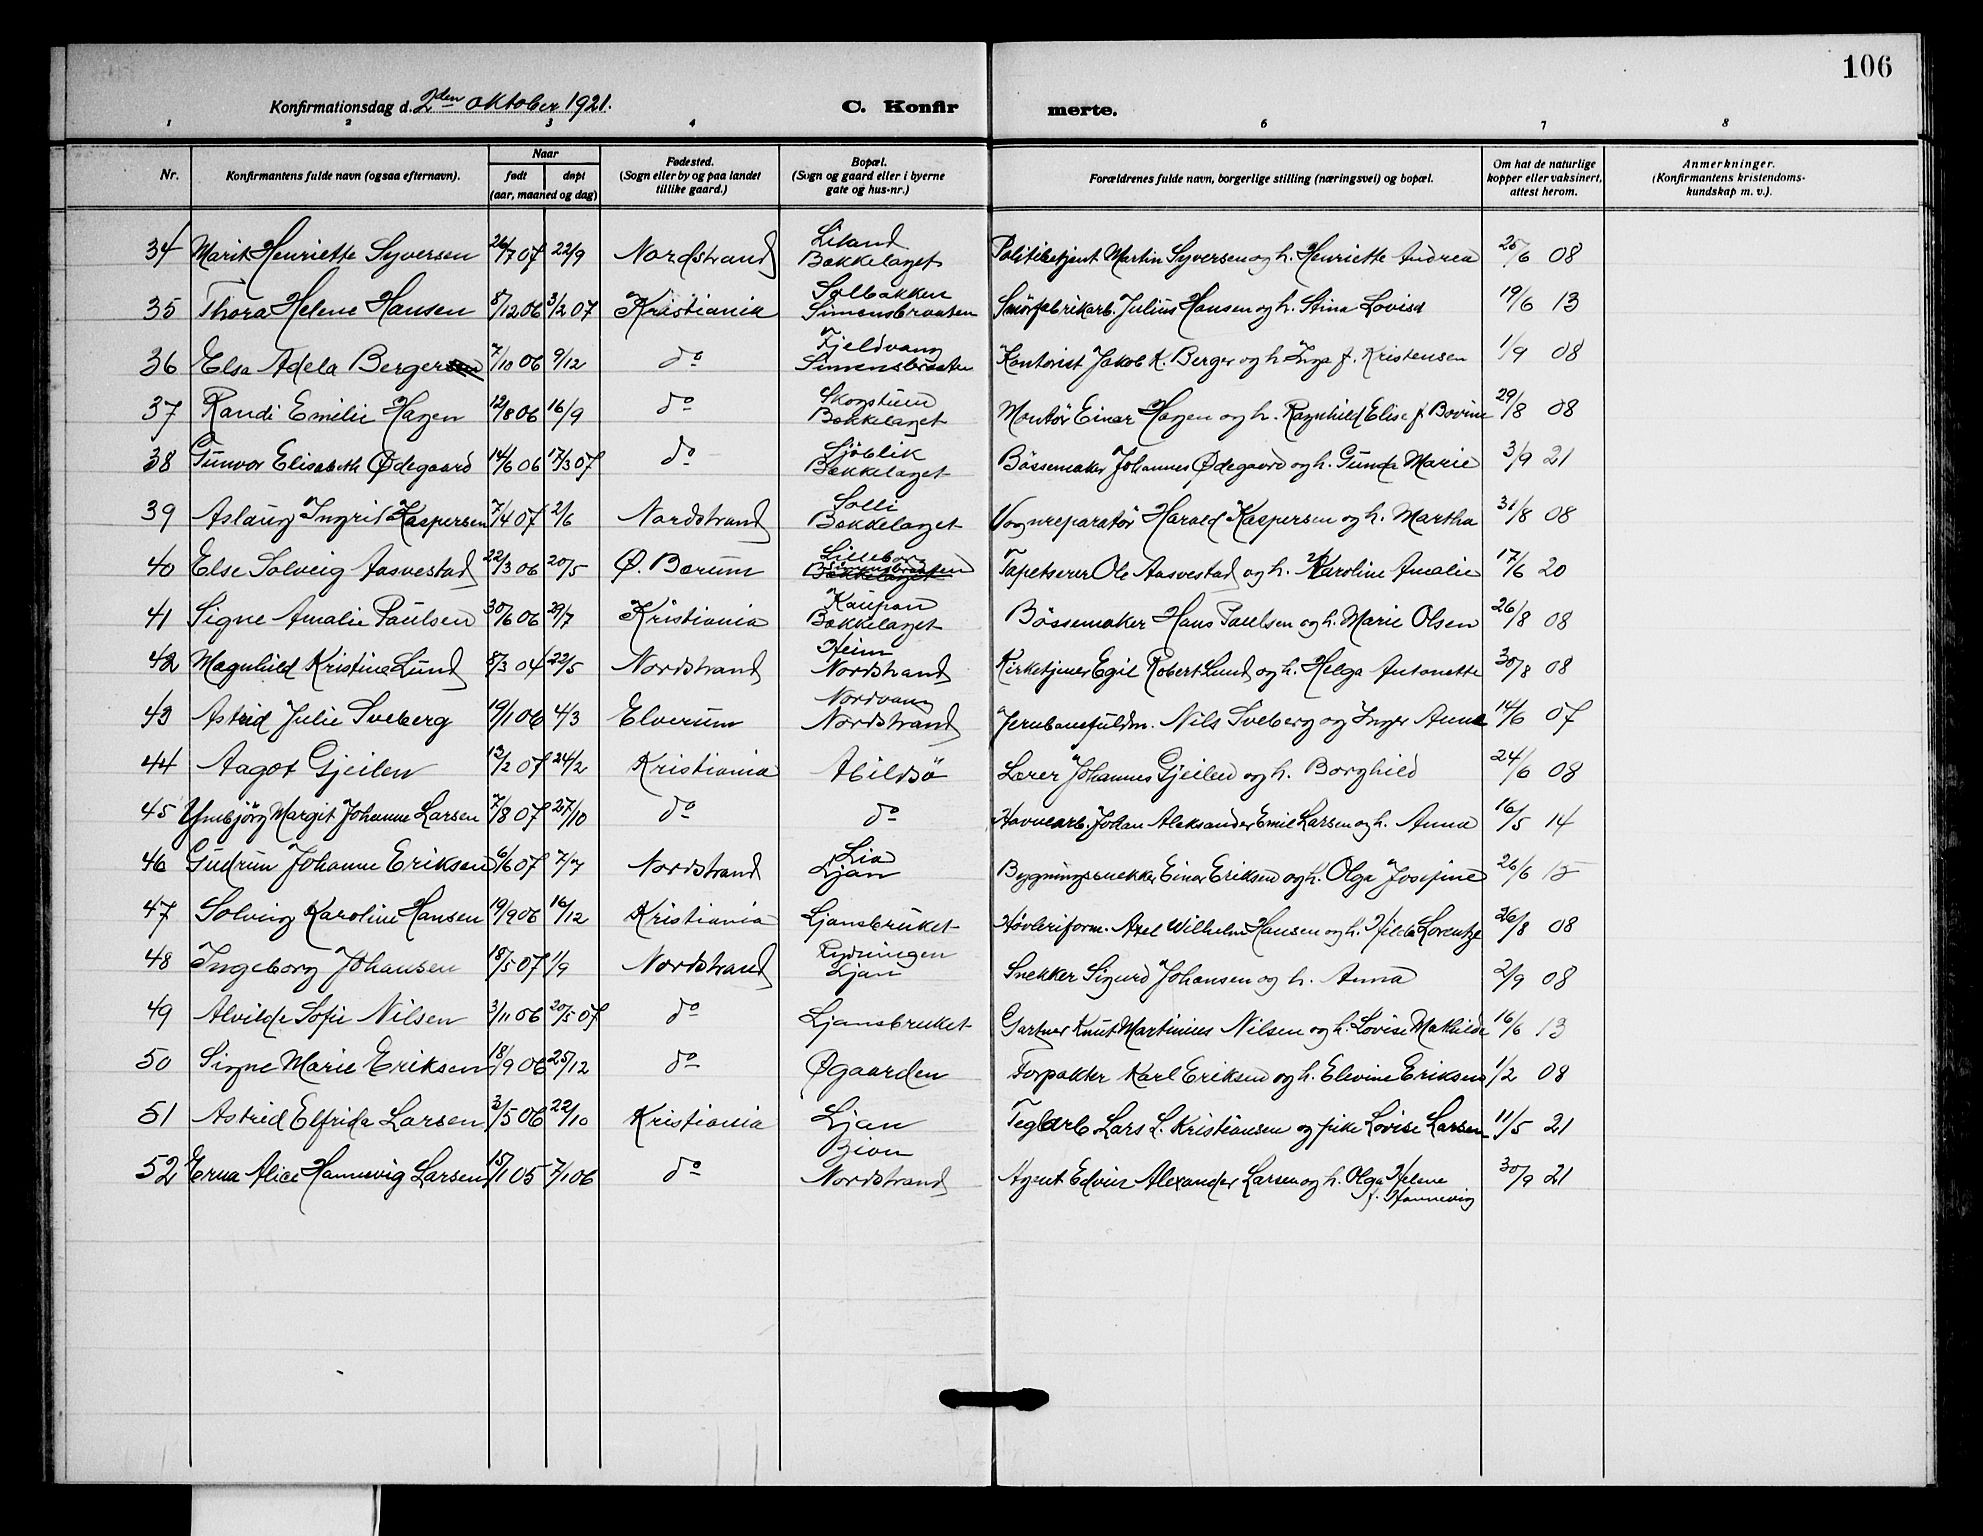 106
Konfirmationsdag d. 2den oktober 1921.
C. Konfir merte.
1 2 3 4 6 7 8
Nr. Konfirmantens fulde navn (ogsaa efternavn). Naar født døpt (aar, maaned og dag) Fødested. (Sogn eller by og paa landet tillike gaard.) Bopæl. (Sogn og gaard eller i byerne gate og hus-nr.) Forældrenes fulde navn, borgerlige stilling (næringsvei) og bopæl. Om hat de naturlige kopper eller vaksinert, attest herom. Anmerkninger. (Konfirmantens kristendoms-kundskap m. v.).
34 Marit Henriette Syversen 26/7 07 22/9 Nordstrand Liland Bækkelaget Politibetjent Martin Syversen og h. Henriette Andrea 25/6 08
35 Thora Helene Hansen 8/12 06 3/2 07 Kristiania Solbakken Simensbraaten Smörfabrikarb. Julius Hansen og h. Stina Lovisa 19/6 13
36 Elsa Adela Berger 7/10 06 9/12 do Fjeldvang Simensbraaten Kontorist Jakob K. Berger og h. Inga f. Kristensen 1/9 08
37 Randi Emilie Hagen 12/8 06 16/9 do Skogstuen Bækkelaget Montör Einar Hagen og h. Ragnhild Elise f. 29/8 08
38 Gunvor Elisabeth Ødegaard 14/6 06 17/3 07 do Sjöblik Bækkelaget Bössemaker Johannes Ødegaard og h. Gunda Marie 3/9 21
39 Aslaug Ingrid Kaspersen 7/4 07 2/6 Nordstrand Solli Bækkelaget Vognreparatör Harald Kaspersen og h. Martha 31/8 08
40 Else Solveig Aasvestad 22/3 06 20/5 Ø. Bærum Lillebo Simensbraaten Bækkelaget Tapetserer Ole Aasvestad og h. Karoline Amalie 17/6 20
41 Signe Amalie Paulsen 30/6 06 29/7 Kristiania Kaupan Bækkelaget Bössemaker Hans Paulsen og h. Marie Olsen 26/8 08
42 Magnhild Kristine Lund 8/3 04 22/5 Nordstrand Heim Nordstrand Kirketjener Egil Robert Lund og h. Helga Antonette 30/8 08
43 Astrid Julie Sveberg 19/1 06 4/3 Elverum Nordvang Nordstrand Jernbanefuldm. Nils Sveberg og Inger Anna 14/6 07
44 Aagot Gjeilen 12/2 07 24/2 Kristiania Abildsö Lærer Johannes Gjeilen og h. Borghild 24/6 08
45 Ymbjörg Margit Johanne Larsen 7/8 07 27/10 do do Havnearb. Johan Aleksander Emil Larsen og h. Anna 16/5 14
46 Gudrun Johanne Eriksen 6/6 07 7/7 Nordstrand Lia Ljan Bygningssnekker Einar Eriksen og h. Olga Josefine 26/6 15
47 Solveig Karoline Hansen 19/9 06 16/12 Kristiania Ljansbruket Høvleriform. Axel Wilhelm Hansen og h. Hilda Lorentze 26/8 08
48 Ingeborg Johansen 18/5 07 1/9 Nordstrand Rydningen Ljan Snekker Sigurd Johansen og h. Anna 2/9 08
49 Alvilde Sofie Nilsen 3/11 06 20/5 07 do Ljansbruket Gartner Knut Martinius Nilsen og h. Lovise Mathilda 16/6 13
50 Signe Marie Eriksen 18/9 06 25/12 do Øgaarden Forpakter Karl Eriksen og h. Elevine Eriksen 1/2 08
51 Astrid Elfrida Larsen 3/5 06 22/10 Kristiania Ljan Teglarb Lars L. Kristiansen og pike Lovise Larsen 11/5 21
52 Erna Alice Hannevig Larsen 15/1 05 7/1 06 do Bion Nordstrand Agent Edvin Alexander Larsen og h. Olga Helene f. Hannevig 30/9 21